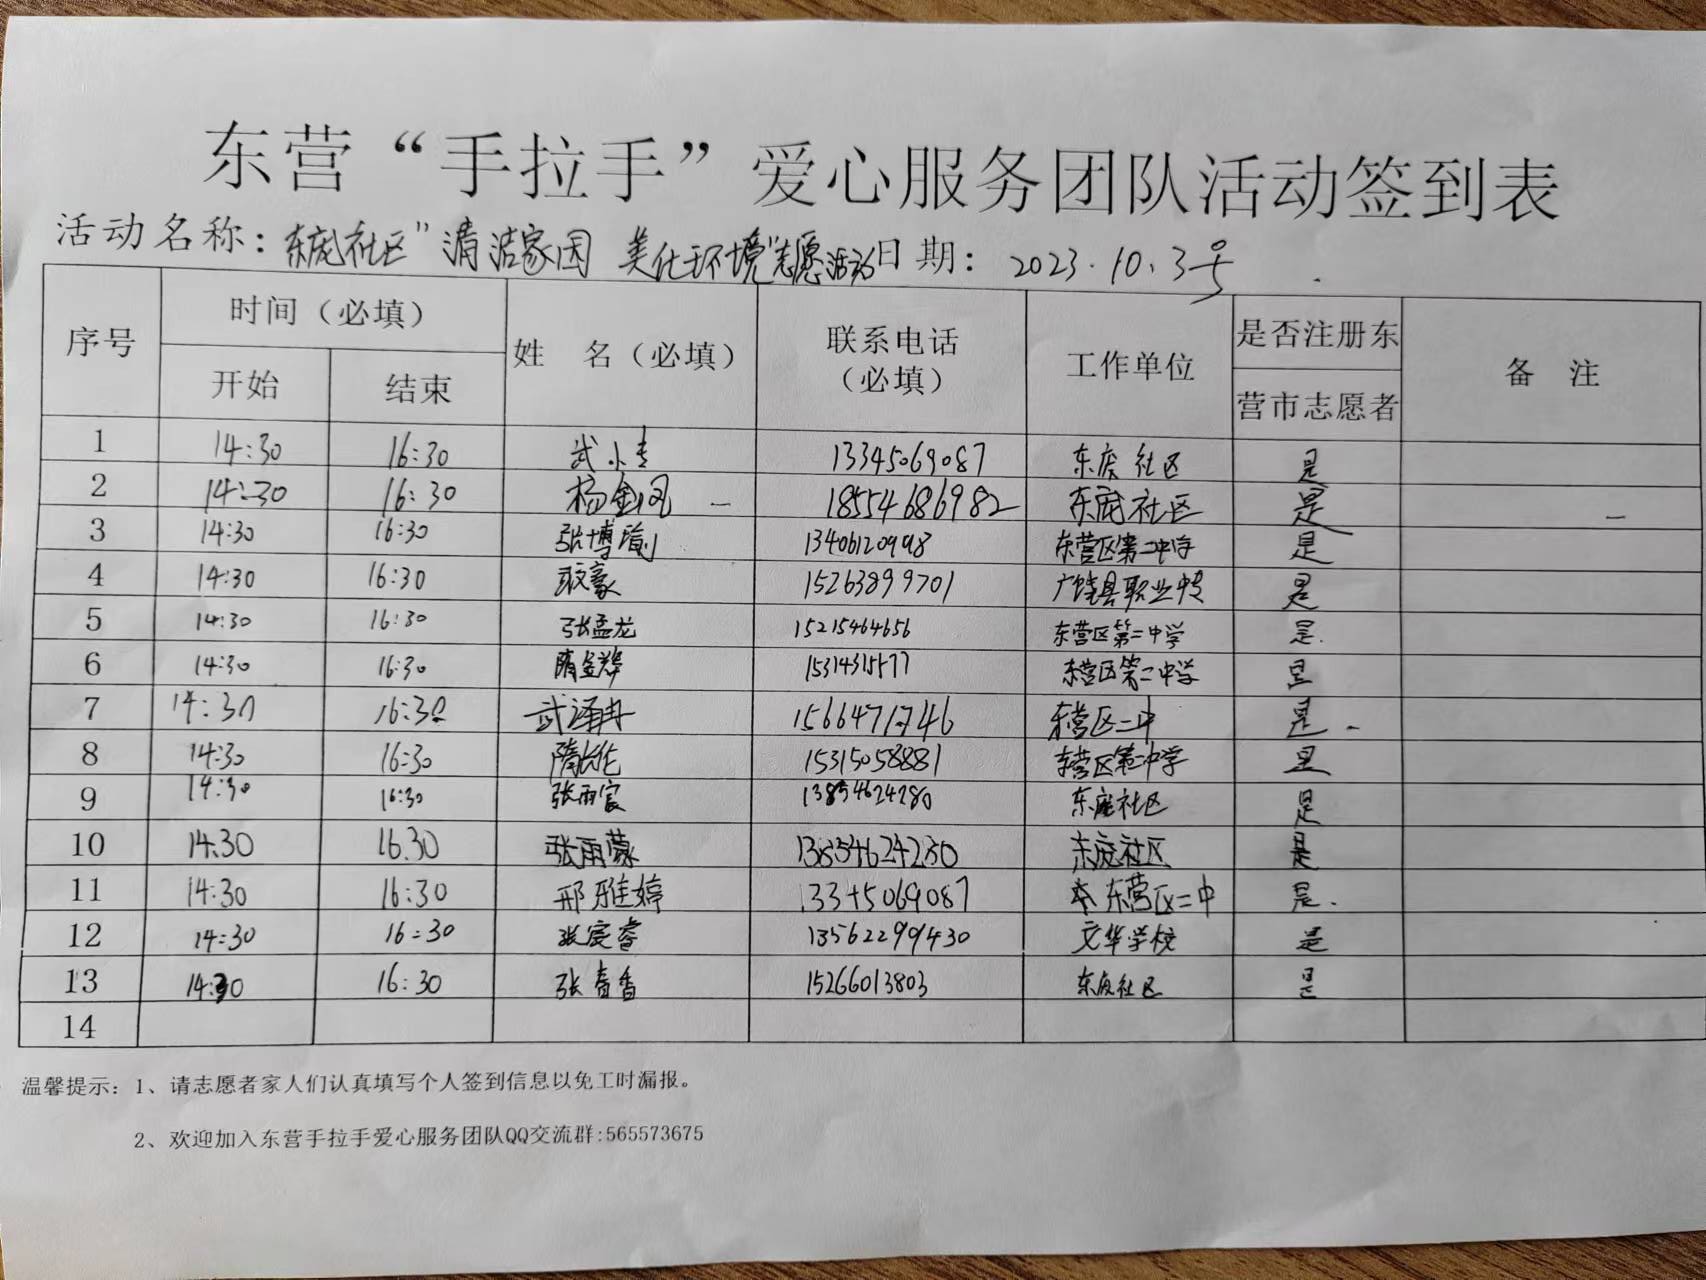 东营“手拉手”爱心服务团队活动签到表
活动名称：东庞社区"清洁家园 美化环境"志愿活动 日期：2023.10.3号
序号 时间（必填） 姓 名（必填） 联系电话（必填） 工作单位 是否注册东营市志愿者 备 注
开始 结束
1 14:30 16:30 武小 13345069087 社区 是
2 14:30 16:30 杨金凤 18554686982 社区 是
3 14:30 16:30 张博瑜 13406120998 东营区第二中学 是
4 14:30 16:30 豪 15263899701 广饶县职业中专 是
5 14:30 16:30 张孟龙 15215464656 东营区第二中学 是
6 14:30 16:30 隋金 15314315177 东营区第二中学 是
7 14:30 16:30 武泽冉 15664717746 东营区二中 是
8 14:30 16:30 隋 15315058881 东营区第二中学 是
9 14:30 16:30 张雨宸 13854624280 社区 是
10 14.30 16.30 张雨蒙 13854624280 社区 是
11 14:30 16:30 邢雅婷 13345069087 东营区二中 是
12 14:30 16:30 张宸睿 13562299430 文华学校 是
13 14:30 16:30 张春香 15266013803 社区 是
14
温馨提示：1、请志愿者家人们认真填写个人签到信息以免工时漏报。
2、欢迎加入东营手拉手爱心服务团队QQ交流群:565573675